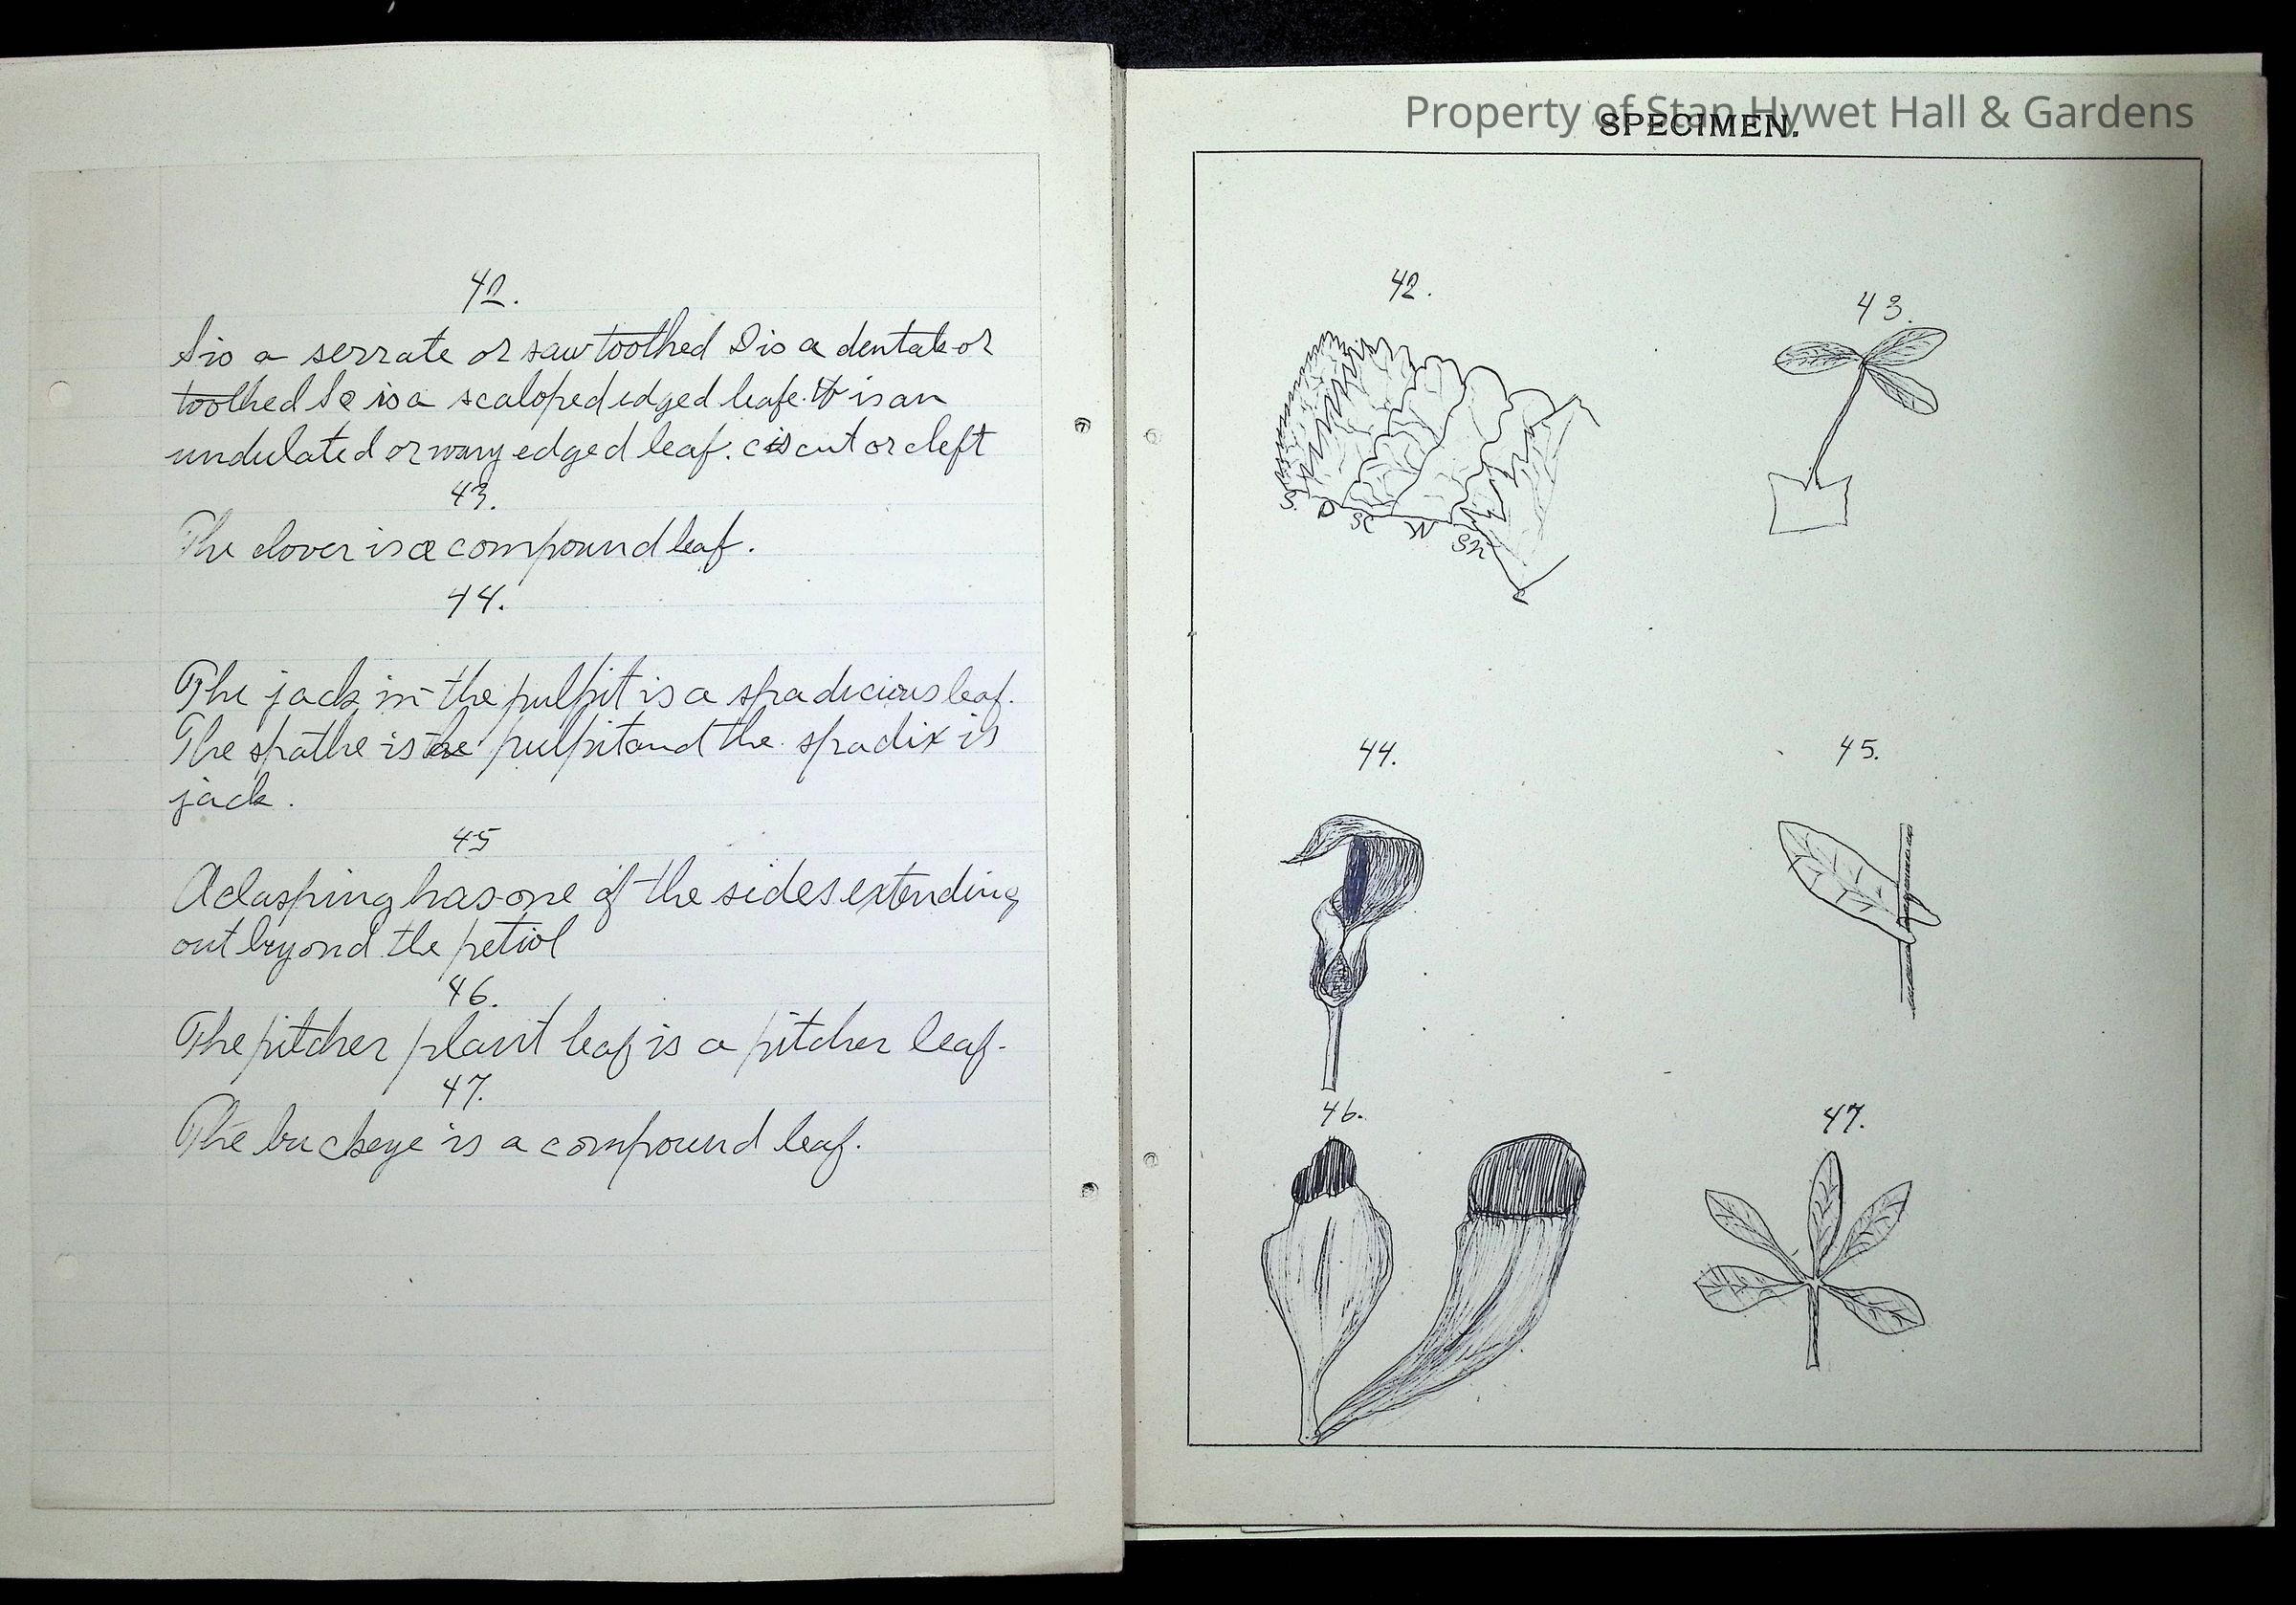 42.
S is a serrate or saw toothed D is a dentate or
toothed Sc is a scaloped edged leafe. W is an
undulated or wavy edged leaf. c is cut or cleft
43.
The clover is a compound leaf.
44.
The jack in the pulpit is a spadicious leaf.
The spathe is the pulpit and the spadix is
jack.
45
A clasping has one of the sides extending
out beyond the petiol
46.
The pitcher plant leaf is a pitcher leaf.
47.
The buckeye is a compound leaf.
Property of Stan Hywet Hall & Gardens
SPECIMEN.
42.
43.
S. D SC W
c
44.
45.
46.
47.